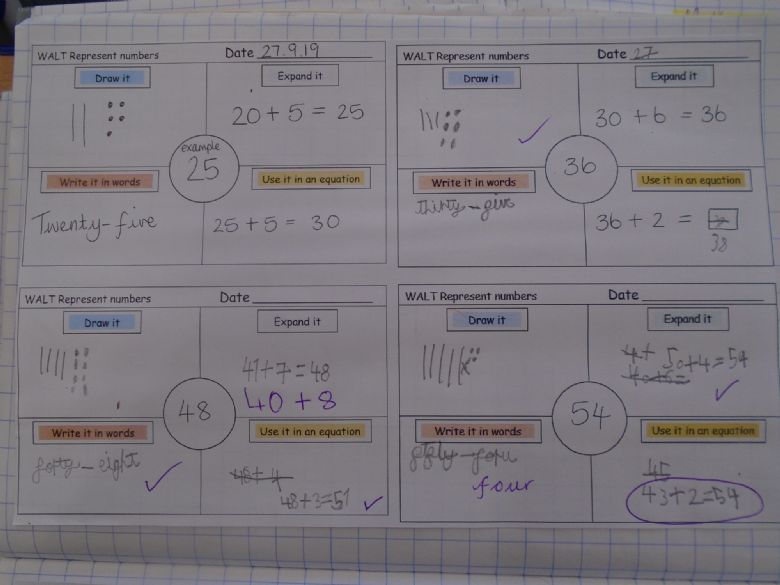 WALT Represent numbers Date 27.9.19
Draw it Expand it
20 + 5 = 25
example
25
Write it in words Use it in an equation
Twenty-five 25 + 5 = 30
WALT Represent numbers Date 27
Draw it Expand it
30 + 6 = 36
36
Write it in words Use it in an equation
36 + 2 =
38
WALT Represent numbers Date
Draw it Expand it
41+7=48
40 + 8
48
Write it in words Use it in an equation
forty-eight
48+3=51
WALT Represent numbers Date
Draw it Expand it
50+4=54
54
Write it in words Use it in an equation
four
45
43+2=54